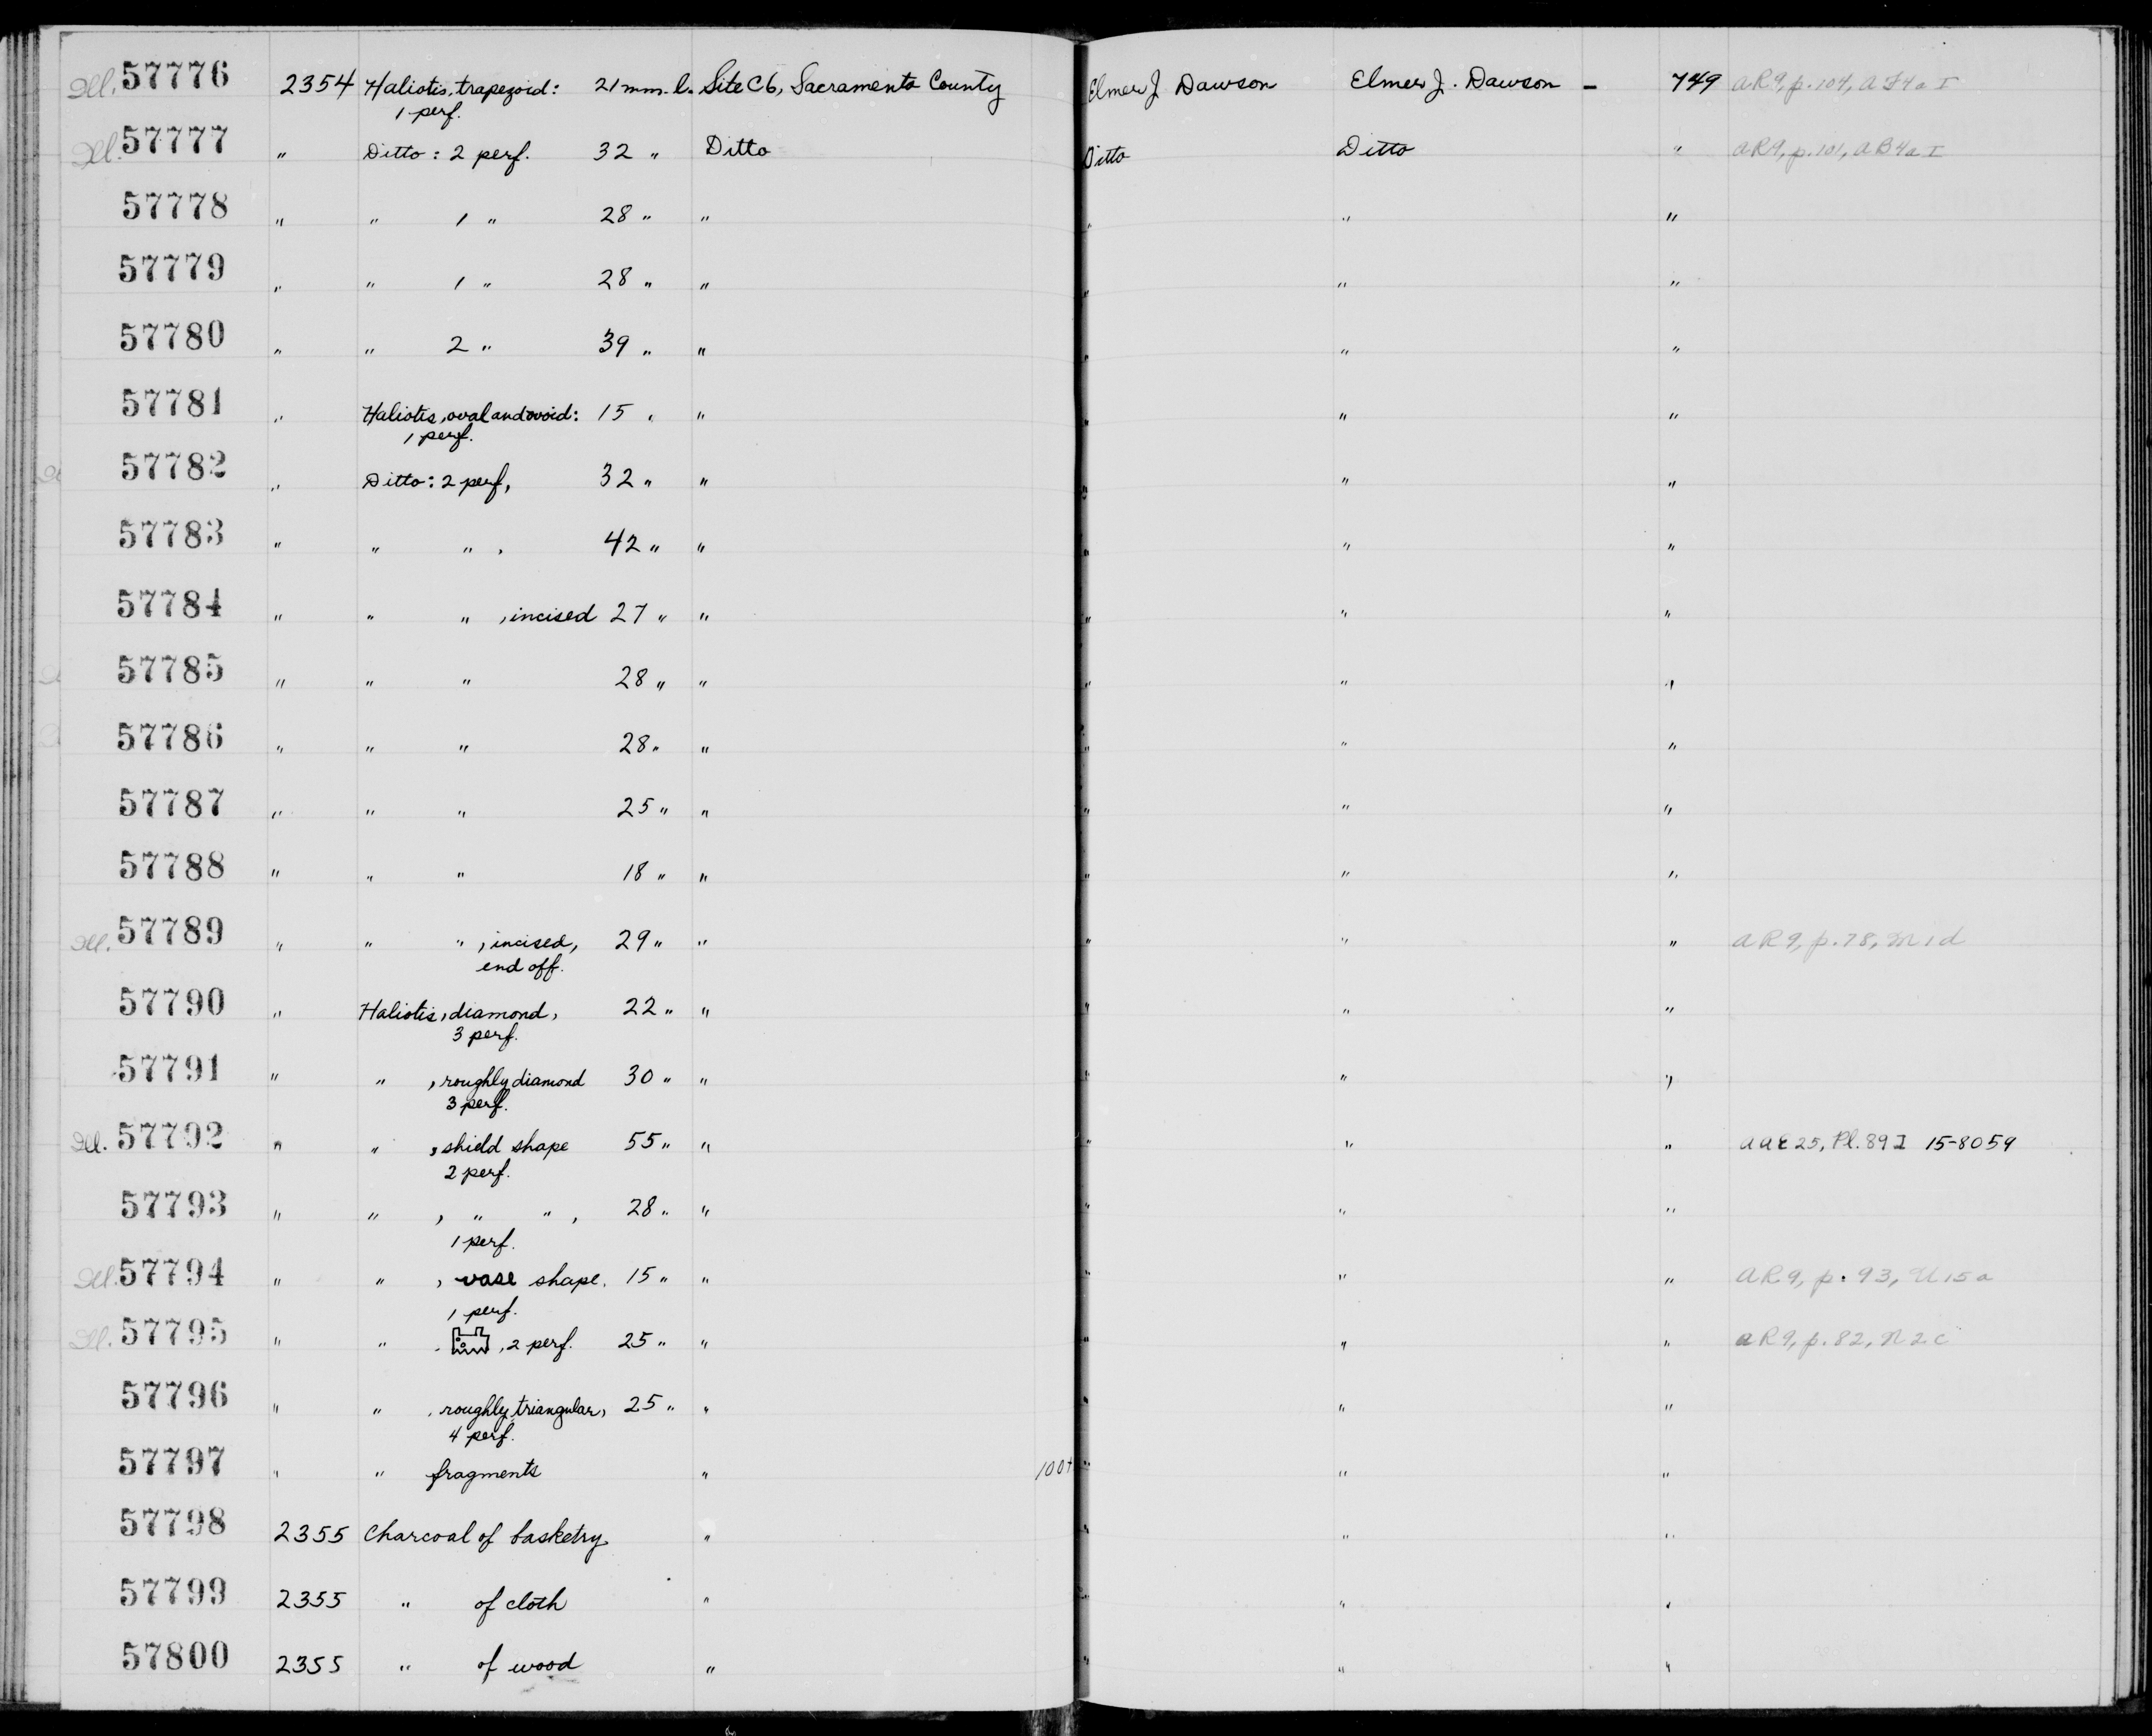 Ill. 57776 2354 Haliotis, trapezoid: 21 mm. l. Site C6, Sacramento County Elmer J Dawson Elmer J. Dawson - 749 AR9, p. 104, AF4a I
1 perf.
Ill. 57777 " Ditto: 2 perf. 32 " Ditto Ditto Ditto " AR9, p. 101, AB4a I
57778 " " 1 " 28 " " " " "
57779 " " 1 " 28 " " " " "
57780 " " 2 " 39 " " " " "
57781 " Haliotis, oval and ovoid: 15 " " " " "
1 perf.
57782 " Ditto: 2 perf, 32 " " " " "
57783 " " " , 42 " " " " "
57784 " " " , incised 27 " " " " "
57785 " " " 28 " " " " "
57786 " " " 28 " " " " "
57787 " " " 25 " " " " "
57788 " " " 18 " " " " "
Ill. 57789 " " " , incised, 29 " " " " " AR9, p. 78, M1d
end off.
57790 " Haliotis, diamond, 22 " " " " "
3 perf.
57791 " " , roughly diamond 30 " " " " "
3 perf.
Ill. 57792 " " , shield shape 55 " " " " " AAE25, Pl. 89 I 15-8059
2 perf.
57793 " " , " " , 28 " " " " "
1 perf.
Ill. 57794 " " , vase shape, 15 " " " " " AR9, p. 93, U15a
1 perf.
Ill. 57795 " " , , 2 perf. 25 " " " " " AR9, p. 82, N2c
57796 " " , roughly triangular, 25 " " " " "
4 perf.
57797 " " fragments " 100+ " " "
57798 2355 Charcoal of basketry " " " "
57799 2355 " of cloth " " " "
57800 2355 " of wood " " " "